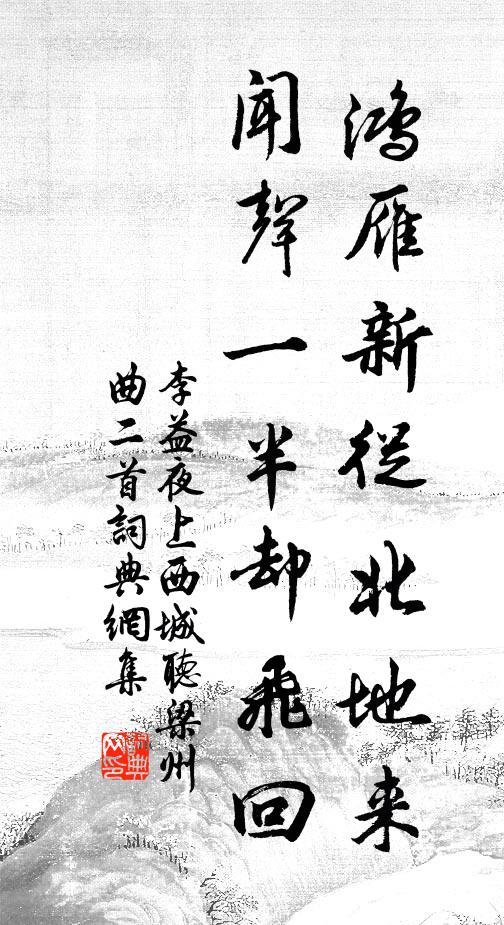 鸿雁新從北地来
闻聲一半却飛回
李益夜上西城聽梁州
曲二首詞典網集